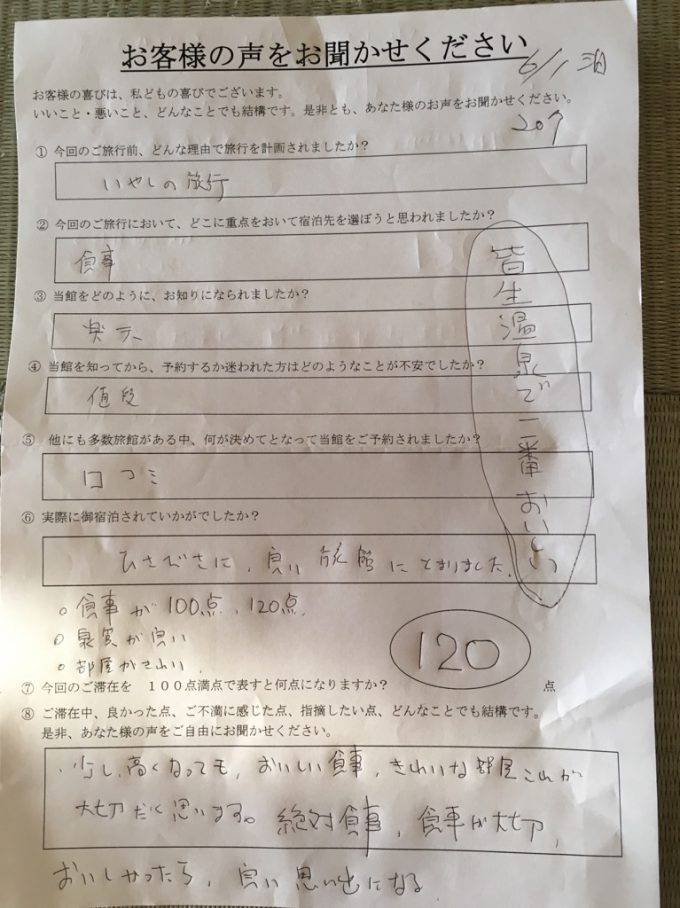 お客様の声をお聞かせください
6/1 泊
お客様の喜びは、私どもの喜びでございます。
いいこと・悪いこと、どんなことでも結構です。是非とも、あなた様のお声をお聞かせください。
207
① 今回のご旅行前、どんな理由で旅行を計画されましたか？
いやしの旅行
② 今回のご旅行において、どこに重点をおいて宿泊先を選ぼうと思われましたか？
食事
③ 当館をどのように、お知りになられましたか？
楽天
④ 当館を知ってから、予約するか迷われた方はどのようなことが不安でしたか？
値段
⑤ 他にも多数旅館がある中、何が決めてとなって当館をご予約されましたか？
口コミ
皆生温泉で一番おいしい
⑥ 実際に御宿泊されていかがでしたか？
ひさびさに、良い旅館にとまりました。
○食事が100点、120点
○泉質が良い
○部屋がきれい
⑦ 今回のご滞在を １００点満点で表すと何点になりますか？ 120 点
⑧ ご滞在中、良かった点、ご不満に感じた点、指摘したい点、どんなことでも結構です。
是非、あなた様の声をご自由にお聞かせください。
少し高くなっても、おいしい食事、きれいな部屋これが
大切だと思います。絶対食事、食事が大切、
おいしかったら、良い思い出になる